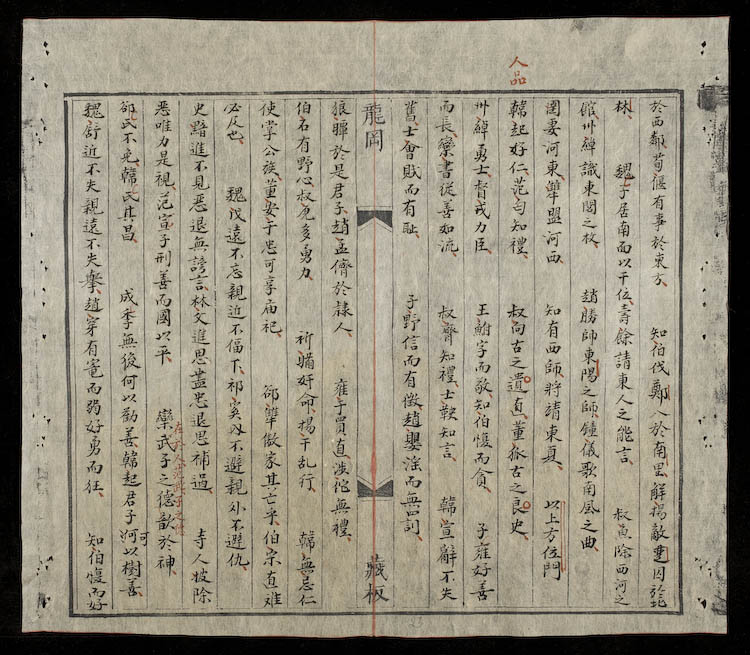 人品
於西鄰荀偃有事於東方、知伯伐鄭入於南里解揚敵建囚於北
林、魏子居南面以干位壽餘請東人之能言、叔魚除西河之
館州綽識東閭之枚、趙勝師東陽之師鍾儀歌南風之曲、
圉妻河東、犨盟河西、知有西師、將靖東夏、以上方位門
韓起好仁、范匄知禮、叔向古之遺直、董狐古之良史、
州綽勇士督戎力臣、王鮒字而敬、知伯愎而貪、子雍好善
而長、欒書從善如流、叔齊知禮、士鞅知言、韓宣辭不失
舊、士會賤而有恥、子野信而有徵、趙嬰淫而無罰
龍岡
藏板
狼瞫於是君子、趙孟儕於隸人、雍子買直、涉佗無禮、
伯石有野心、叔虎多勇力、祈瞞奸命、揚干乱行、韓無忌仁
使掌公族、董安于忠可享廟祀、郤犨傲家其亡乎、伯宗直难
必及也、魏戊遠不忘親近不偪下、祁奚内不避親外不避仇、
史黯進不見惡退無謗言、林父進思盡忠退思補過、寺人披除
惡唯力是視、范宣子刑善而國以平、欒武子之德歆於神
在於人范武子之德
郤氏不免韓氏其昌、成季無後何以勸善、韓起君子可以樹善、
可
魏舒近不失親遠不失舉、趙穿有寵而弱好勇而狂、知伯愎而好
23